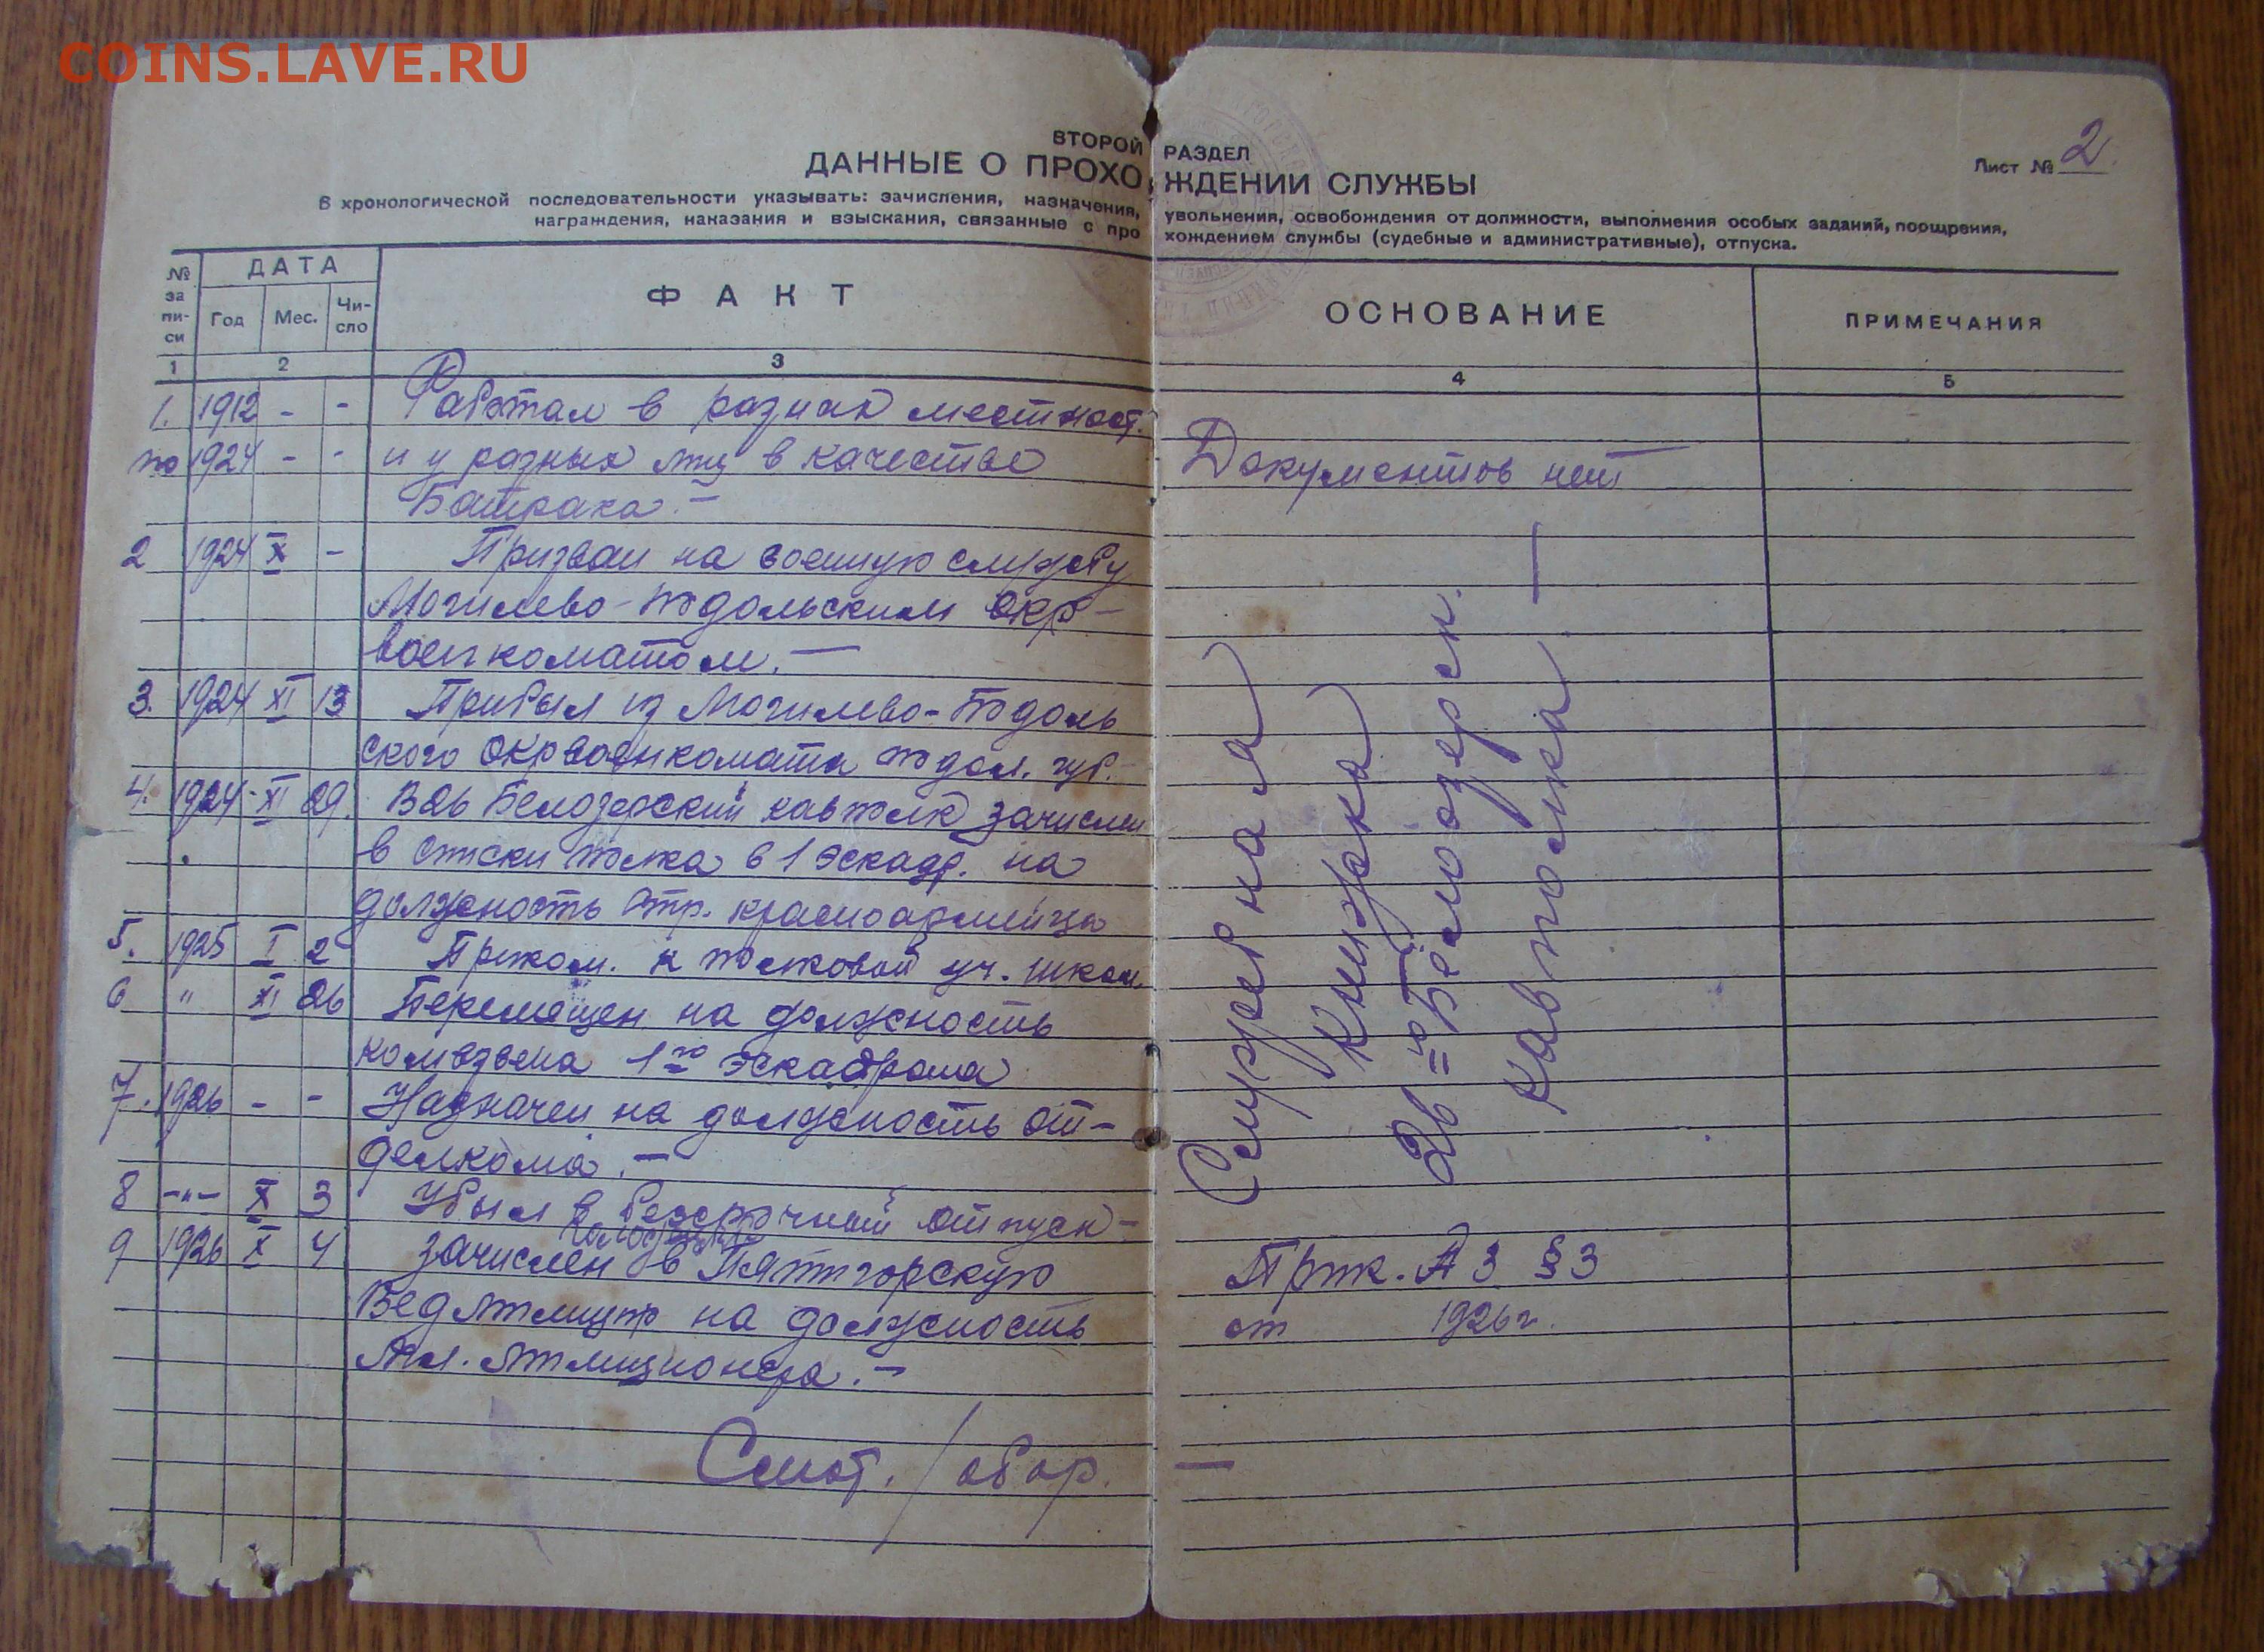 COINS.LAVE.RU
ВТОРОЙ РАЗДЕЛ
Лист № 2.
ДАННЫЕ О ПРОХОЖДЕНИИ СЛУЖБЫ
В хронологической последовательности указывать: зачисления, назначения, увольнения, освобождения от должности, выполнения особых заданий, поощрения,
награждения, наказания и взыскания, связанные с прохождением службы (судебные и административные), отпуска.
№ за пи- си
ДАТА
Год Мес. Чи- сло
ФАКТ
ОСНОВАНИЕ
ПРИМЕЧАНИЯ
1 2 3 4 5
1. 1912 - - Работал в разных местност.
по 1924 - - и у разных лиц в качестве
Батрака. -
Документов нет
2 1924 X - Призван на военную службу
Могилево-Подольским окр-
военкоматом. -
3. 1924 XI 13 Прибыл из Могилево-Подоль
ского Окрвоенкомата Подол. губ.
4. 1924 XI 29. В 26 Белозерский кавполк зачислен
в списки полка в 1 эскадр. на
должность стр. красноармейца
5. 1925 I 2 Приком. к полковой уч. школ.
6 " XI 26 Перемещен на должность
комвзвена 1го эскадрона
7. 1926 - - Назначен на должность от-
делкома. -
8 -"- X 3 Убыл в бессрочный отпуск -
Служебная
Книжка
26 го Белозерск.
Кав полка —
9 1926 X 4 зачислен в Пятигорскую
Ведмилицию на должность
Мл. Милиционера. -
Прик. № 3 § 3
от 1926 г.
Смот. / обор. —